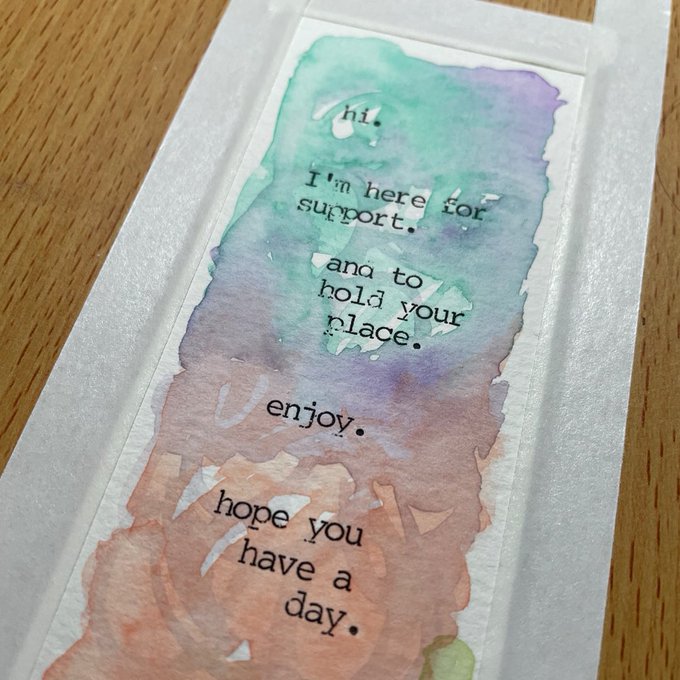 hi.
I'm here for
support.
and to
hold your
place.
enjoy.
hope you
have a
day.